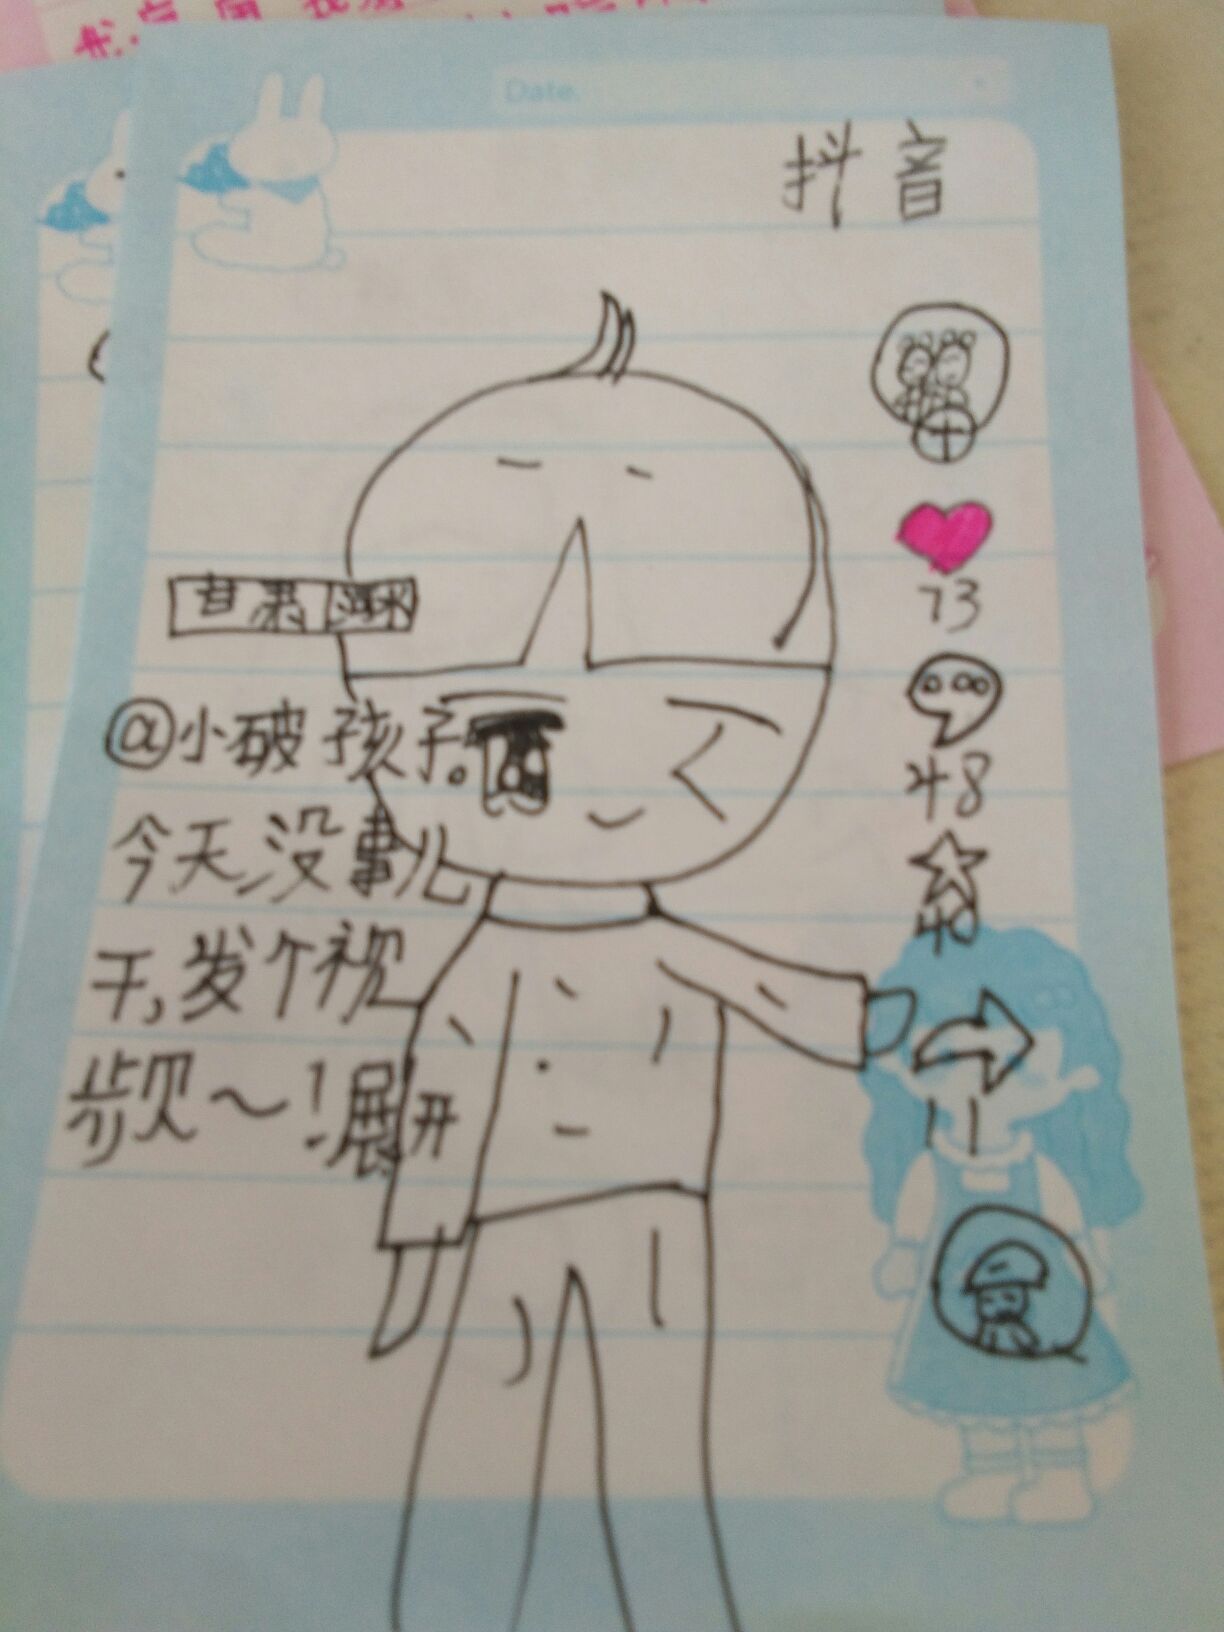 Date.
抖音
甘肃
73
@小破孩子。
48
今天,没事儿
40
干,发个视
频~!展开
11